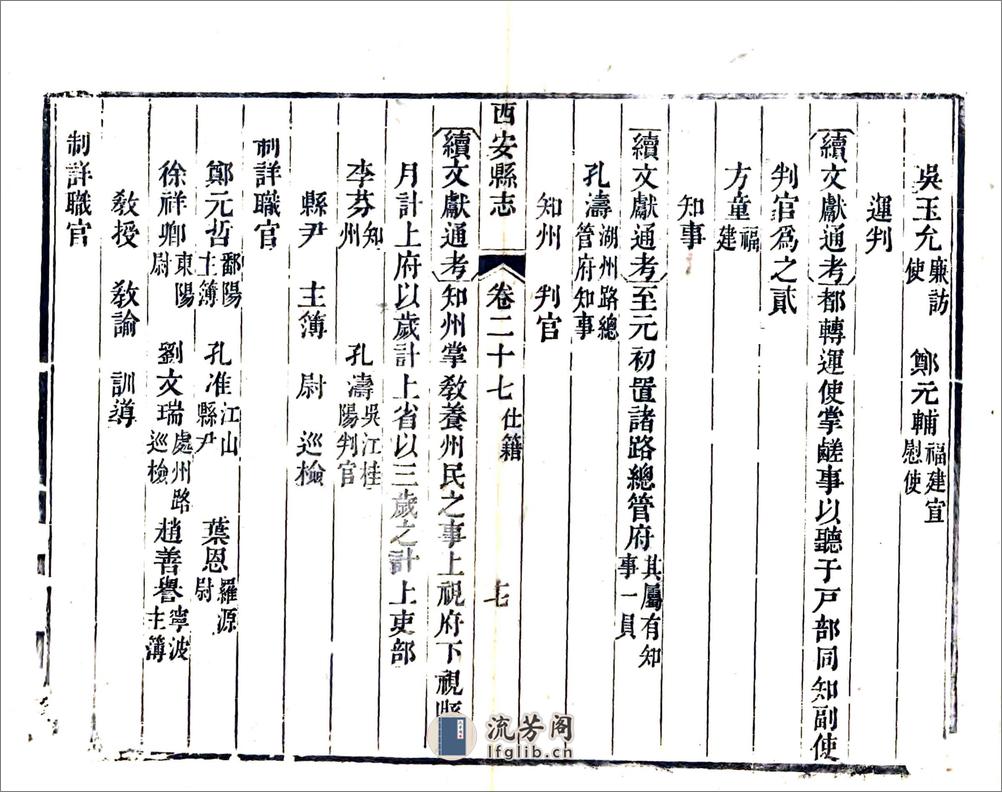 吳玉允廉訪使　鄭元輔福建宣慰使
運判
續文獻通考都轉運使掌鹺事以聽于戸部同知副使
判官爲之貳
方童福建
知事
續文獻通考至元初置諸路總管府其屬有知事一員
孔濤湖州路總管府知事
知州　判官
西安縣志　卷二十七　仕籍　十七
續文獻通考知州掌教養州民之事上視府下視縣
月計上府以歲計上省以三歲之計上吏部
李芬知州　孔濤吳江桂陽判官
縣尹　主簿　尉　巡檢
制詳職官
鄭元哲鄱陽主簿　孔准江山縣尹　葉恩羅源尉
徐祥卿東陽尉　劉文瑞處州路巡檢　趙善譽寧波主簿
教授　教諭　訓導
制詳職官
流芳阁
lfglib.cn